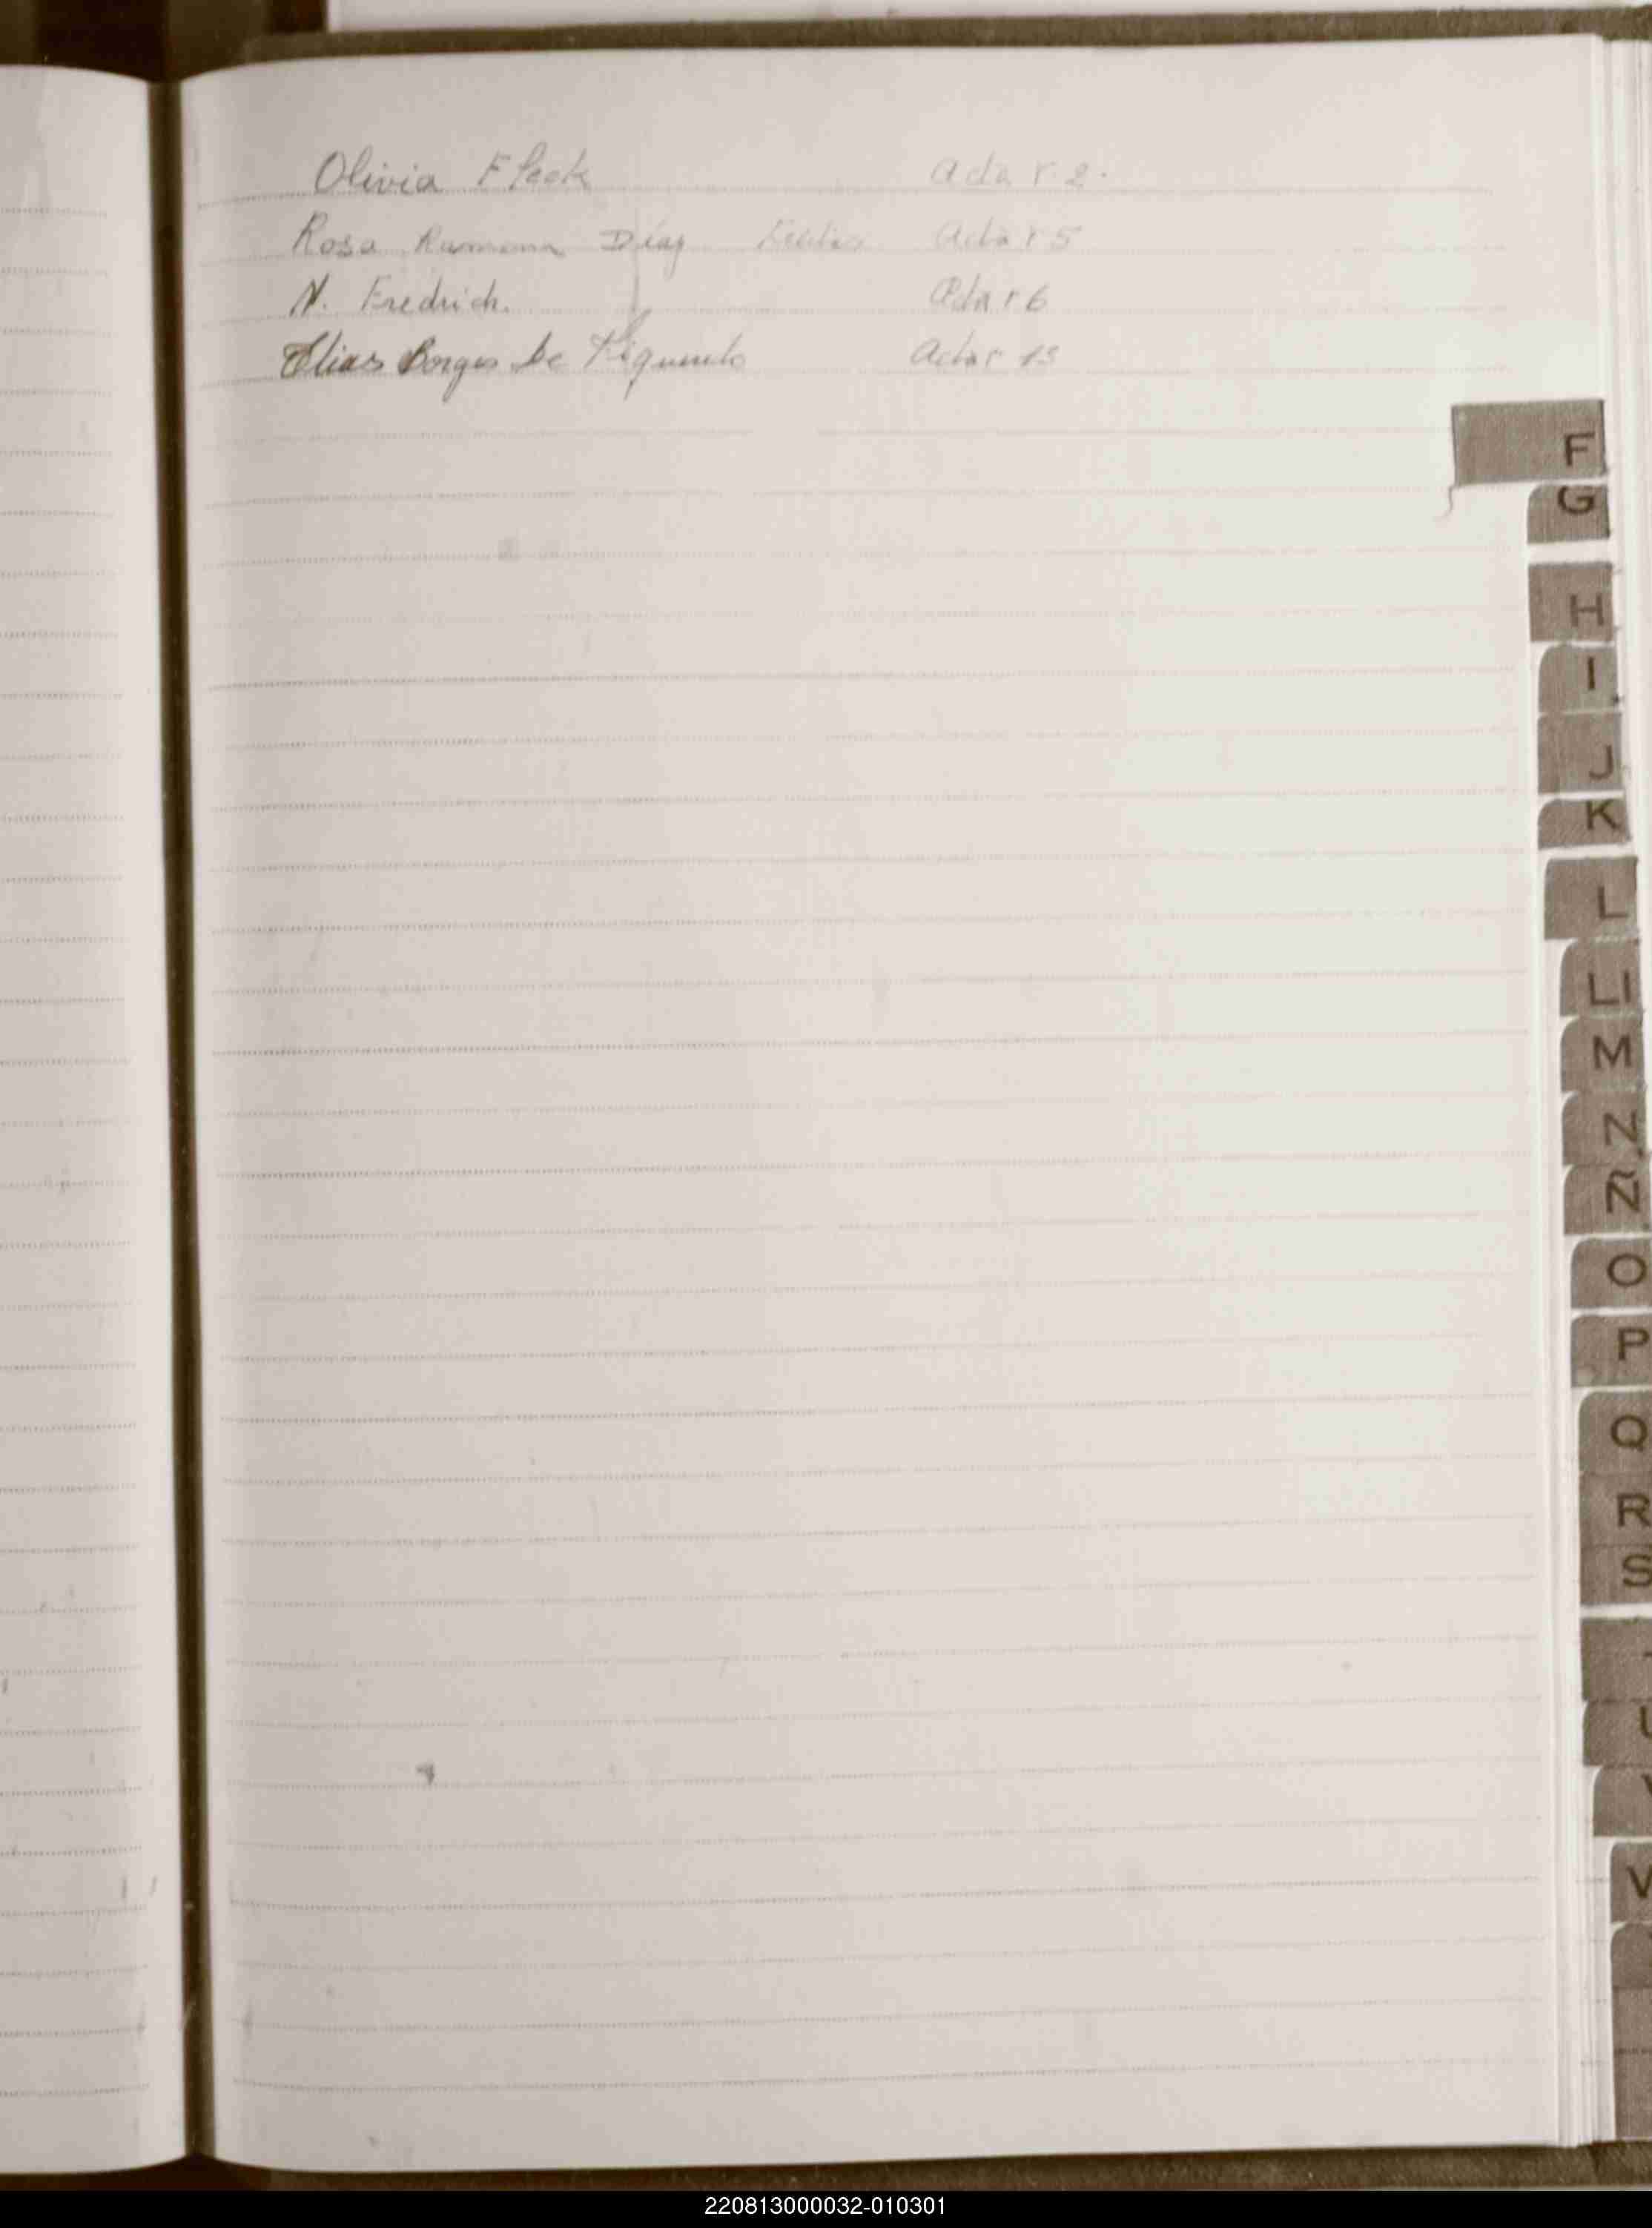 Olivia Fleck Acta r 2.
Rosa Ramona Díaz Acta r 5
N. Fredrich. Acta r 6
Elias Borges de Acta r 13
F
G
H
I
J
K
L
Ll
M
N
Ñ
O
P
Q
R
S
U
V
220813000032-010301